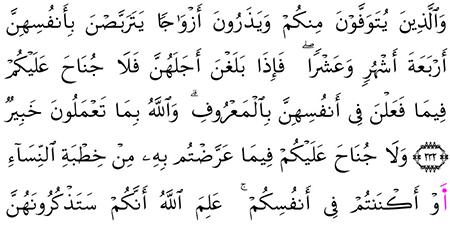 وَٱلَّذِينَ يُتَوَفَّوْنَ مِنكُمْ وَيَذَرُونَ أَزْوَٰجًا يَتَرَبَّصْنَ بِأَنفُسِهِنَّ
أَرْبَعَةَ أَشْهُرٍ وَعَشْرًا ۖ فَإِذَا بَلَغْنَ أَجَلَهُنَّ فَلَا جُنَاحَ عَلَيْكُمْ
فِيمَا فَعَلْنَ فِىٓ أَنفُسِهِنَّ بِٱلْمَعْرُوفِ ۗ وَٱللَّهُ بِمَا تَعْمَلُونَ خَبِيرٌ
﴿٢٣٤﴾ وَلَا جُنَاحَ عَلَيْكُمْ فِيمَا عَرَّضْتُم بِهِۦ مِنْ خِطْبَةِ ٱلنِّسَآءِ
أَوْ أَكْنَنتُمْ فِىٓ أَنفُسِكُمْ ۚ عَلِمَ ٱللَّهُ أَنَّكُمْ سَتَذْكُرُونَهُنَّ